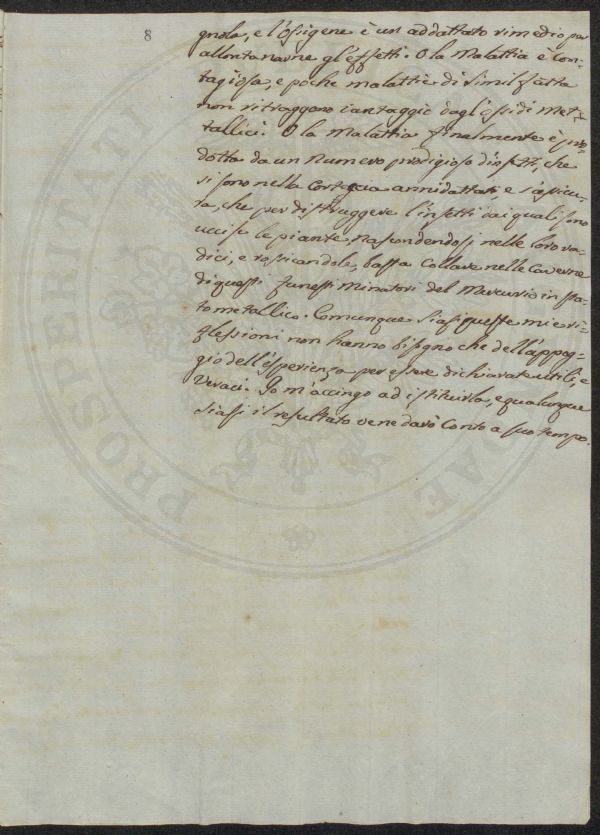 8
gnola, e l'Ossigene è un addattato rimedio per
allontanarne gl'effetti. O la Malattia è con-
tagiosa, e poche malattie di simil fatta
non ritraggono vantaggio dagl'ossidi Met-
tallici. O la Malattia finalmente è pro-
dotta da un Numero prodigioso d'insetti, che
si sono nella Corteccia annidattati, e s'assicu-
ra, che per distruggere l'insetti dai quali sono
uccise le piante, nascondendosi nelle loro ra-
dici, e rossicandole, basta Collare nelle Caverne
di questi funesti Minatori del Mercurio in sta-
to metallico. Comunque siasi queste mie ri-
flessioni non hanno bisogno che dell'appog-
gio dell'esperienza per essere dichiarate utili, e
Veraci. Io m'accingo ad istituirla, e qualunque
siassi il resultato ve ne darò Conto a suo tempo.
PROSPERITATI
DAE